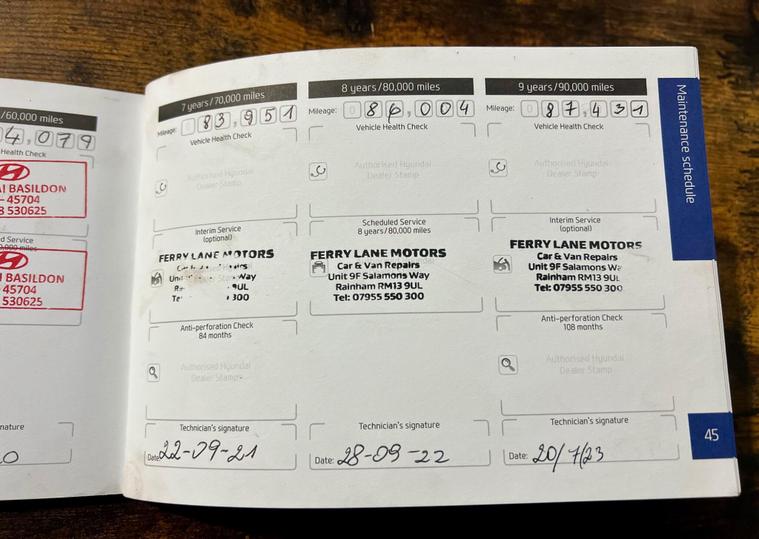 /60,000 miles
4,079
Health Check
AI BASILDON
- 45704
530625
d Service
,000 miles
I BASILDON
45704
530625
nature
0
7 years/70,000 miles
Mileage: 083,951
Vehicle Health Check
Authorised Hyundai
Dealer Stamp
Interim Service
(optional)
FERRY LANE MOTORS
Way
9UL
300
Anti-perforation Check
84 months
Authorised Hyundai
Dealer Stamp
Technician's signature
Date: 22-09-21
8 years/80,000 miles
Mileage: 086,004
Vehicle Health Check
Authorised Hyundai
Dealer Stamp
Scheduled Service
8 years/80,000 miles
FERRY LANE MOTORS
Car & Van Repairs
Unit 9F Salamons Way
Rainham RM13 9UL
Tel: 07955 550 300
Technician's signature
Date: 28-09-22
9 years/90,000 miles
Mileage: 087,431
Vehicle Health Check
Authorised Hyundai
Dealer Stamp
Interim Service
(optional)
FERRY LANE MOTORS
Car & Van Repairs
Unit 9F Salamons Wa
Rainham RM13 9UL
Tel: 07955 550 300
Anti-perforation Check
108 months
Authorised Hyundai
Dealer Stamp
Technician's signature
Date: 20/7/23
Maintenance schedule
45